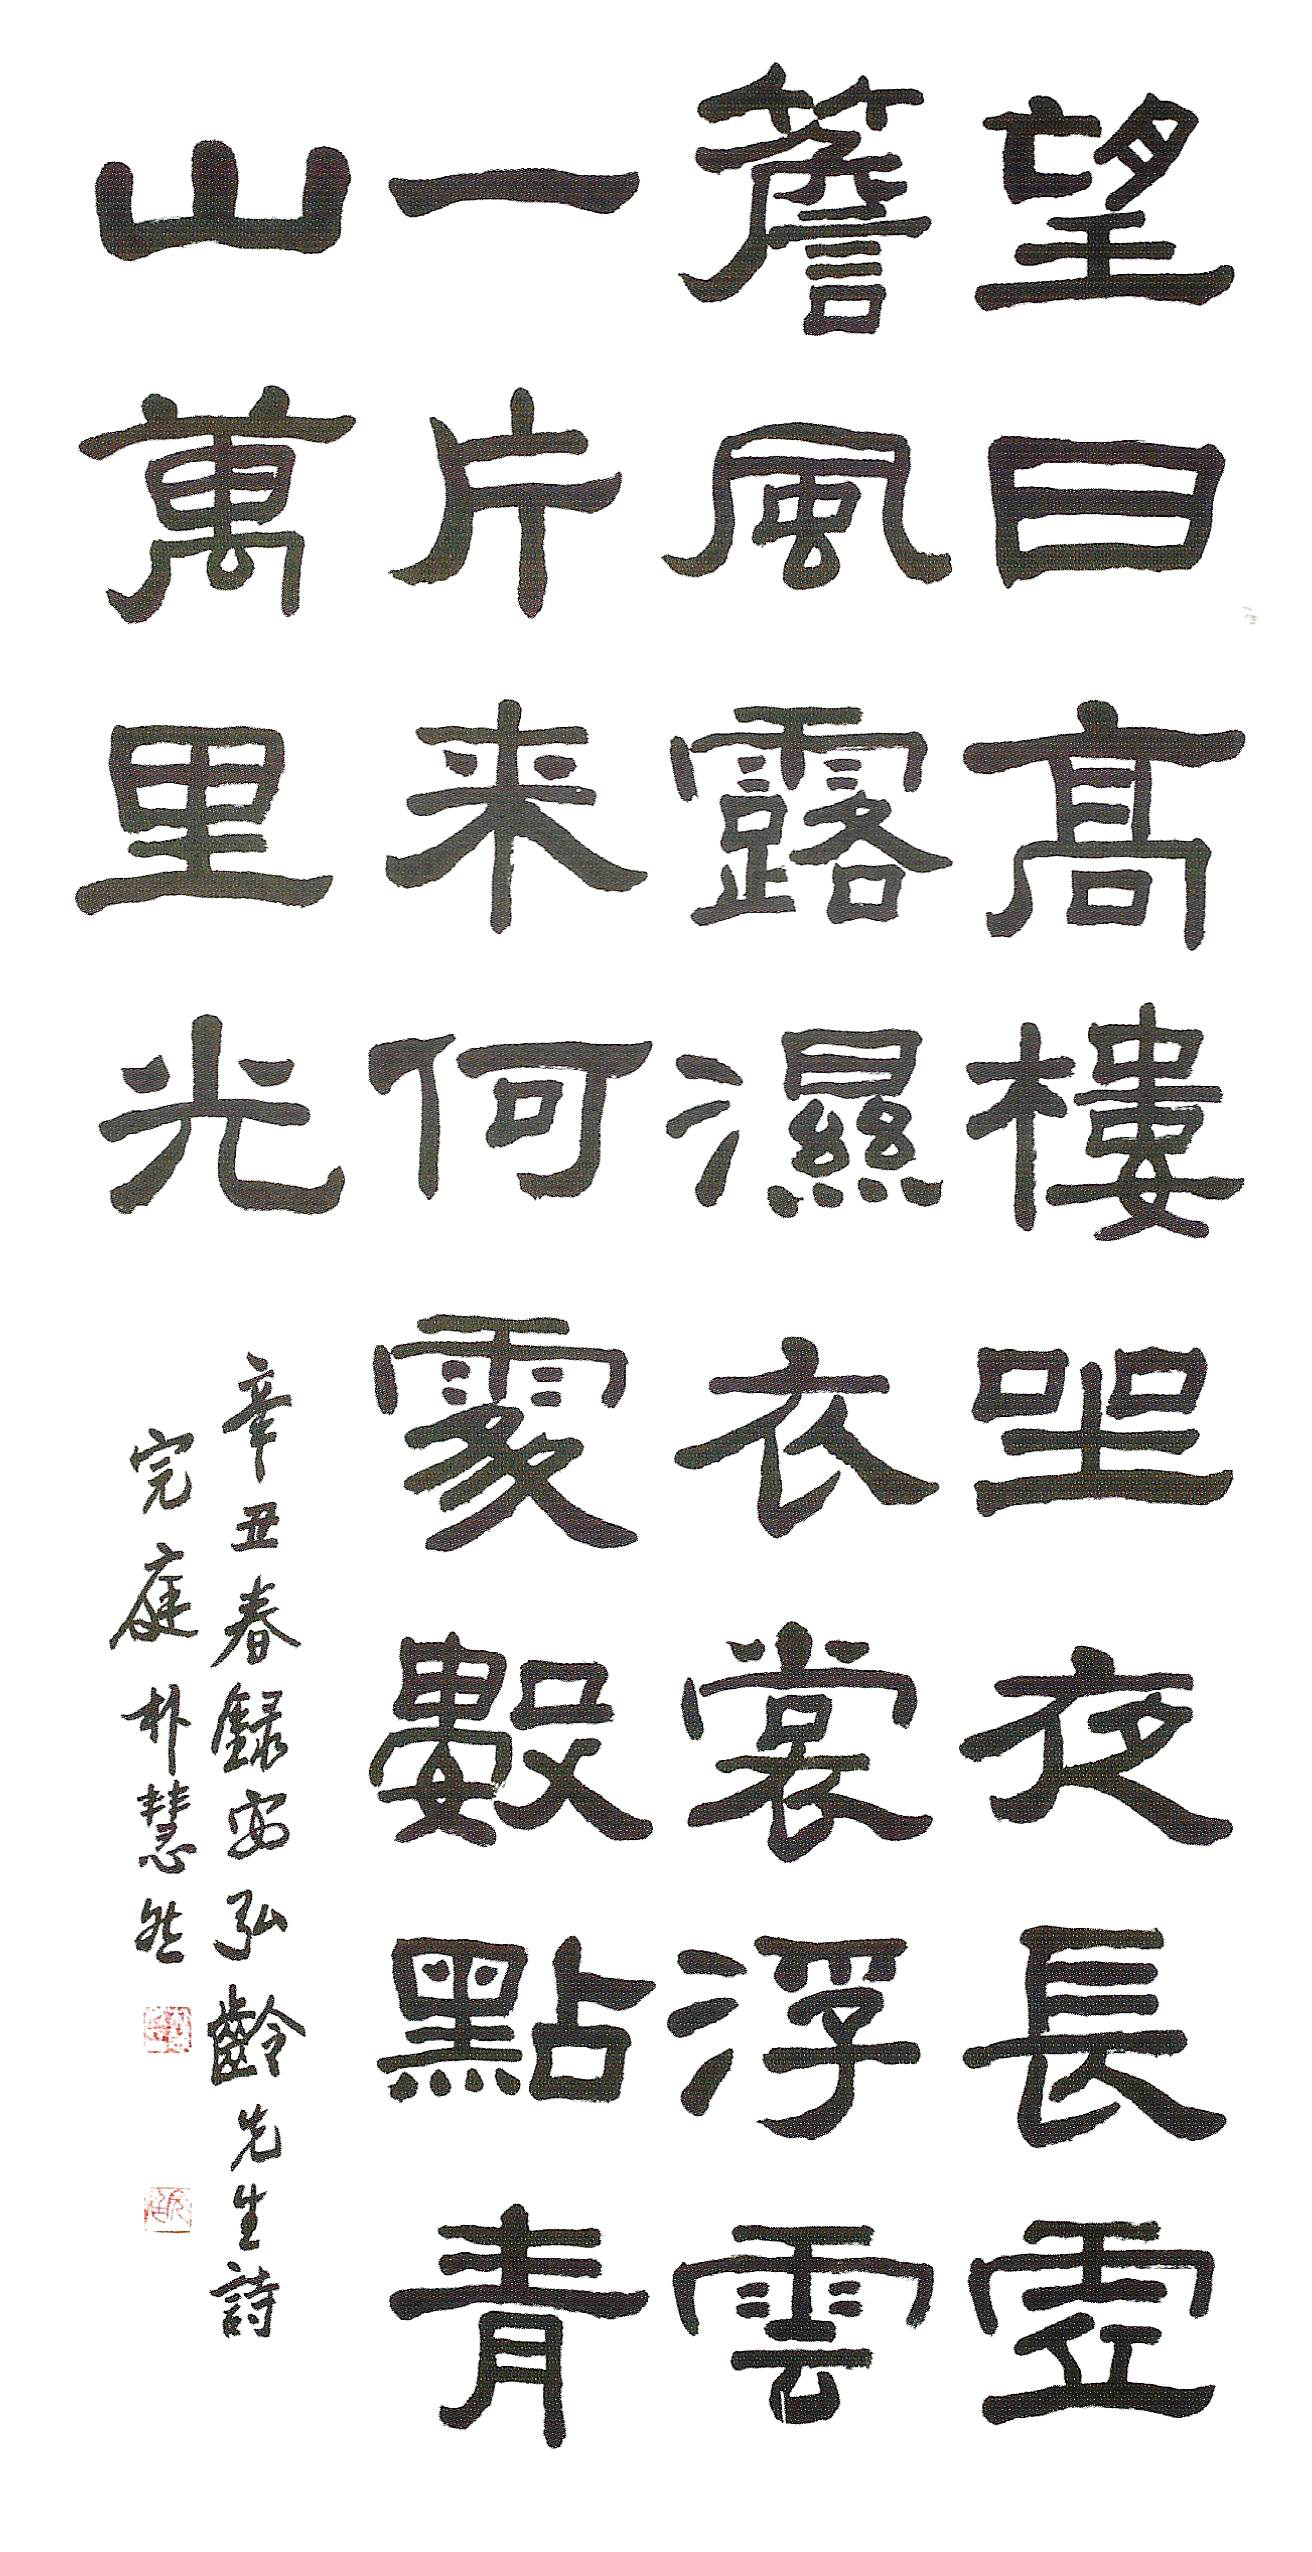 望日高樓坐夜長虛
簷風露濕衣裳浮雲
一片来何處數點青
山萬里光
辛丑春録安弘齡先生詩
完庭朴慧然